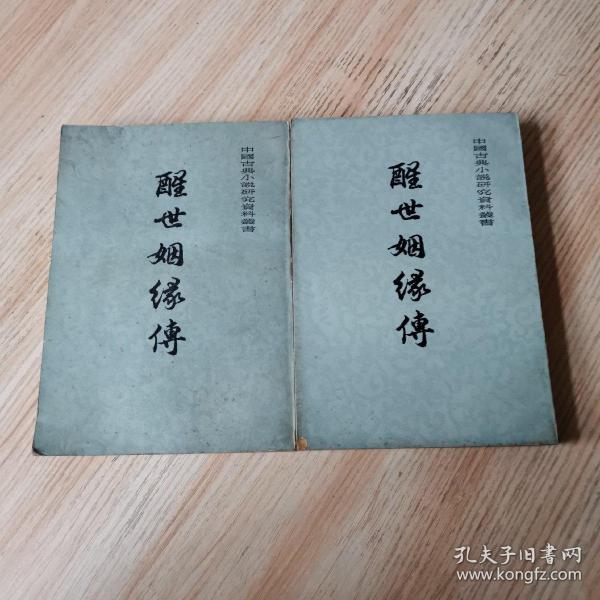 中國古典小說研究資料叢書
醒世姻緣傳
中國古典小說研究資料叢書
醒世姻緣傳
孔夫子旧書网
www.kongfz.com